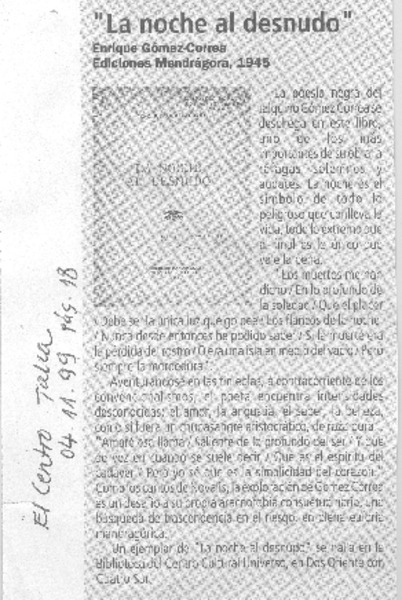 "La noche al desnudo"
Enrique Gómez-Correa
Ediciones Mandrágora, 1945
LA NOCHE
AL DESNUDO
La poesía negra del
talquino Gómez Correa se
despliega en este libro,
uno de los más
importantes de su obra a
ráfagas solemnes y
audaces. La noche es el
símbolo de todo lo
peligroso que conlleva la
vida, todo lo extremo que
al final es lo único que
vale la pena.
"Los muertos me han
dicho / En lo profundo de
la soledad / Que el placer
/ Debe ser la única luz que golpee / Los flancos de la noche
/ Nunca desde entonces he podido saber / Si la muerte era
la pérdida del rostro / O era una isla en medio del vacío / Pero
siempre la mordedura".
Aventurándose en las tinieblas, a contracorriente de los
convencionalismos, el poeta encuentra intensidades
desconocidas: el amor, la angustia, el saber, la belleza,
como si fuera un chupasangre aristocrático, de raza pura.
llama / saliente de lo profundo del ser / Y que
de vez en cuando se suele decir / Que es el espíritu del
cadáver / Pero yo sé que es la simplicidad del corazón".
Como los cantos de Novalis, la exploración de Gómez Correa
es un desafío a su propia consuetudinaria, una
búsqueda de trascendencia en el riesgo, en plena euforia
mandragórica.
Un ejemplar de "La noche al desnudo" se halla en la
Biblioteca del Centro Cultural Universo, en Dos Oriente con
Cuatro Sur.
El Centro Talca
04.11.99 pág. 18